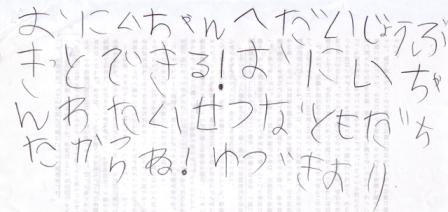 おにいちゃんへだいじょうぶ
きっとできる!おにいちゃ
んわたいせつなともだち
だからね!ゆづきより